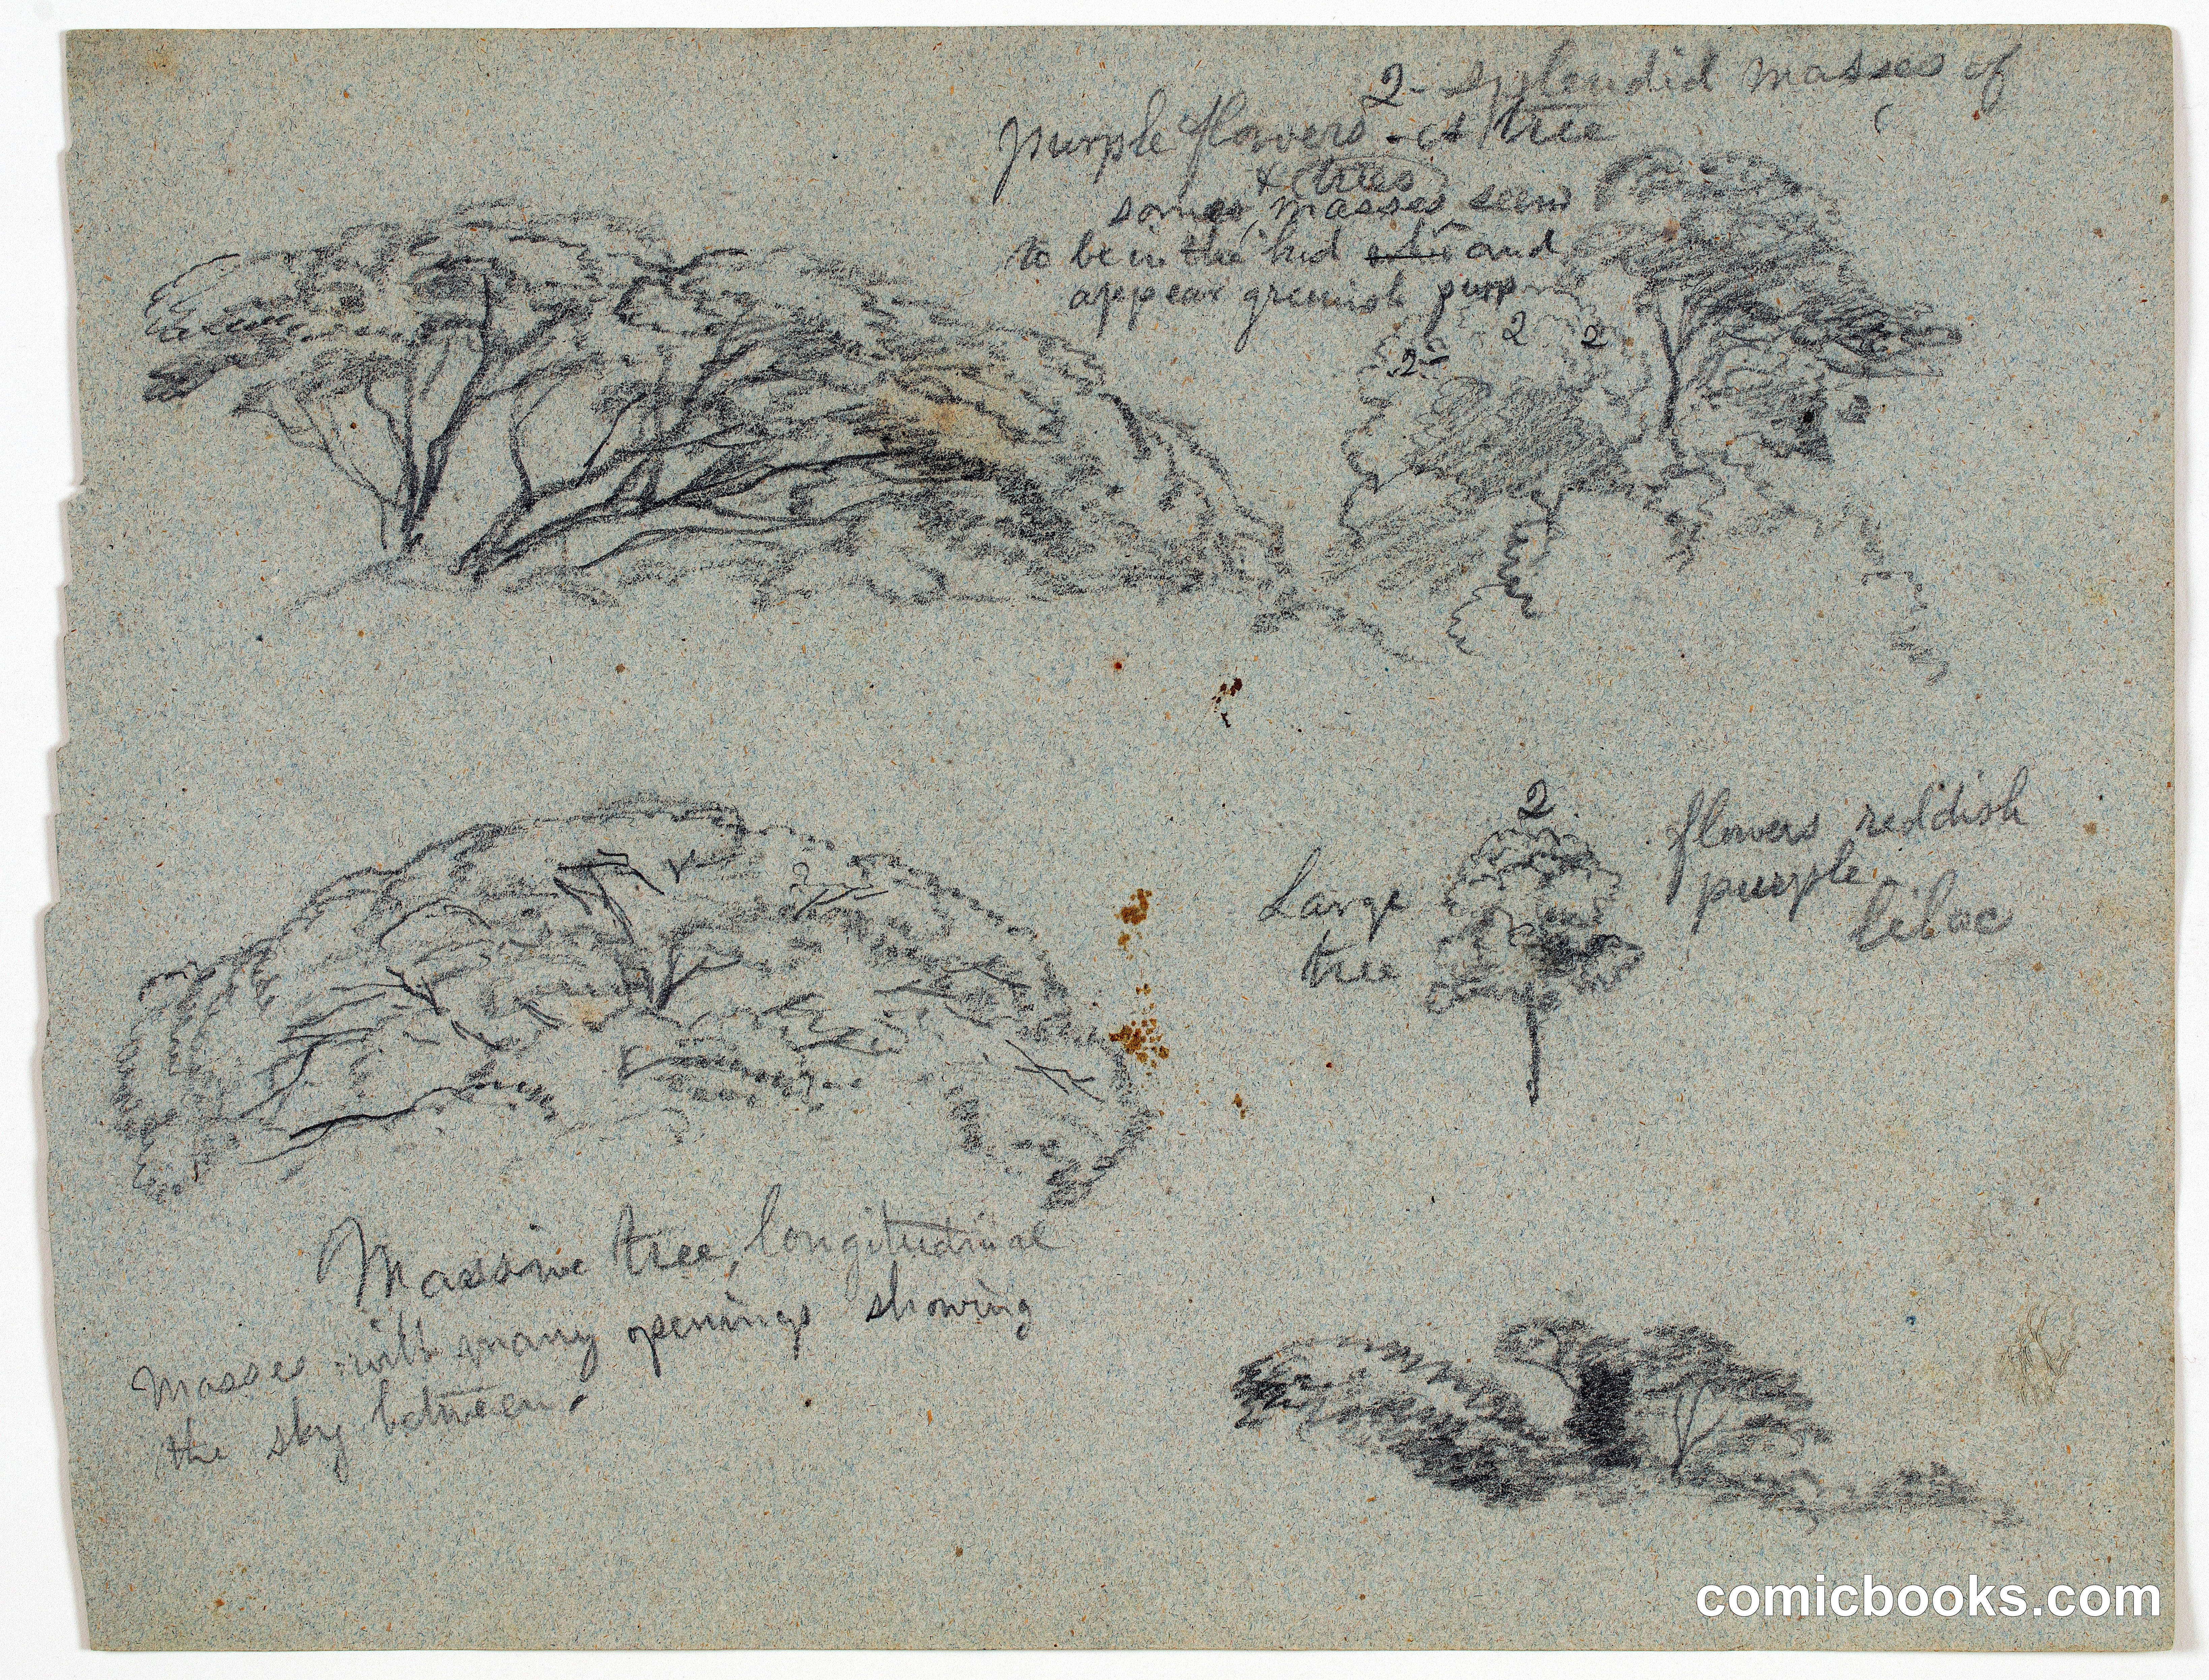 2- splendid masses of
purple flowers - tree
x trees
some masses seem
to be in the bud and
appear greenish purp
2 2
2-
2
flowers reddish
purple
lilac
Large
tree
2
Massive tree, longitudinal
masses with many openings showing
the sky between.
comicbooks.com